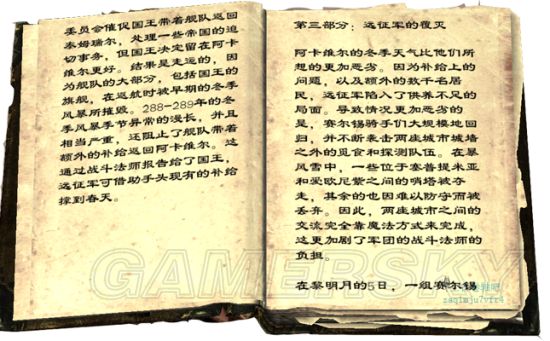 委员会催促国王带着舰队返回
泰姆瑞尔，处理一些帝国的迫
切事务，但国王决定留在阿卡
维尔更好。结果是走运的，因
为舰队的大部分，包括国王的
旗舰，在返航时被早期的冬季
风暴所摧毁。288-289年的冬
季风暴季节异常的漫长，并且
相当严重，还阻止了舰队带着
额外的补给返回阿卡维尔。这
通过战斗法师报告给了国王，
远征军可借助手头现有的补给
撑到春天。
第三部分：远征军的覆灭
阿卡维尔的冬季天气比他们所
想的更加恶劣。因为补给上的
问题，以及额外的数千名居
民，远征军陷入了供养不足的
局面。导致情况更加恶劣的
是，赛尔锡骑手们大规模地回
归，并不断袭击两座城市城墙
之外的觅食和探测队伍。在暴
风雪中，一些位于塞普提米亚
和爱欧尼紫之间的哨塔被夺
走，其余的也因难以防守而被
丢弃。因此，两座城市之间的
交流完全靠魔法方式来完成，
这更加剧了军团的战斗法师的
负担。
在黎明月的5日，一组赛尔锡
GAMERSKY
zaq1mju7vfr4